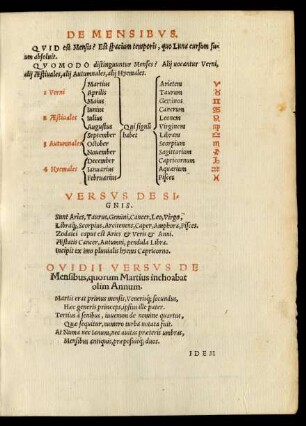 DE MENSIBVS.
QVID est Mensis? Est spacium temporis, quo Luna cursum suum absoluit.
QVOMODO distinguuntur Menses? Alij uocantur Verni,
alij Æstiuales, alij Autumnales, alij Hyemales.
1 Verni
2 Æstiuales
3 Autumnales
4 Hyemales
Martius
Aprilis
Maius
Iunius
Iulius
Augustus
September
October
Nouember
December
Ianuarius
Februarius
Qui signũ habet
Arietem ♈
Taurum ♉
Geminos ♊
Cancrum ♋
Leonem ♌
Virginem ♍
Libram ♎
Scorpium ♏
Sagittarium ♐
Capricornum ♑
Aquarium ♒
Pisces ♓
VERSVS DE SI-
GNIS.
Sunt Aries, Taurus, Gemini, Cancer, Leo, Virgo,
Libraq́, Scorpius, Arcitenens, Caper, Amphora, Pisces.
Zodiaci caput est Aries & Veris & Anni.
Æstatis Cancer, Autumni, pendula Libra.
Incipit ex imo pluuialis hyems Capricorno.
OVIDII VERSVS DE
Mensibus, quorum Martius inchoabat
olim Annum.
Martis erat primus mensis, Venerisq́; secundus,
Hæc generis princeps, ipsius ille pater.
Tertius à senibus, iuuenum de nomine quartus,
Quæ sequitur, numero turba notata fuit.
At Numa nec Ianum, nec auitas præterit umbras,
Mensibus antiquis, proposuitq́; duos.
IDEM